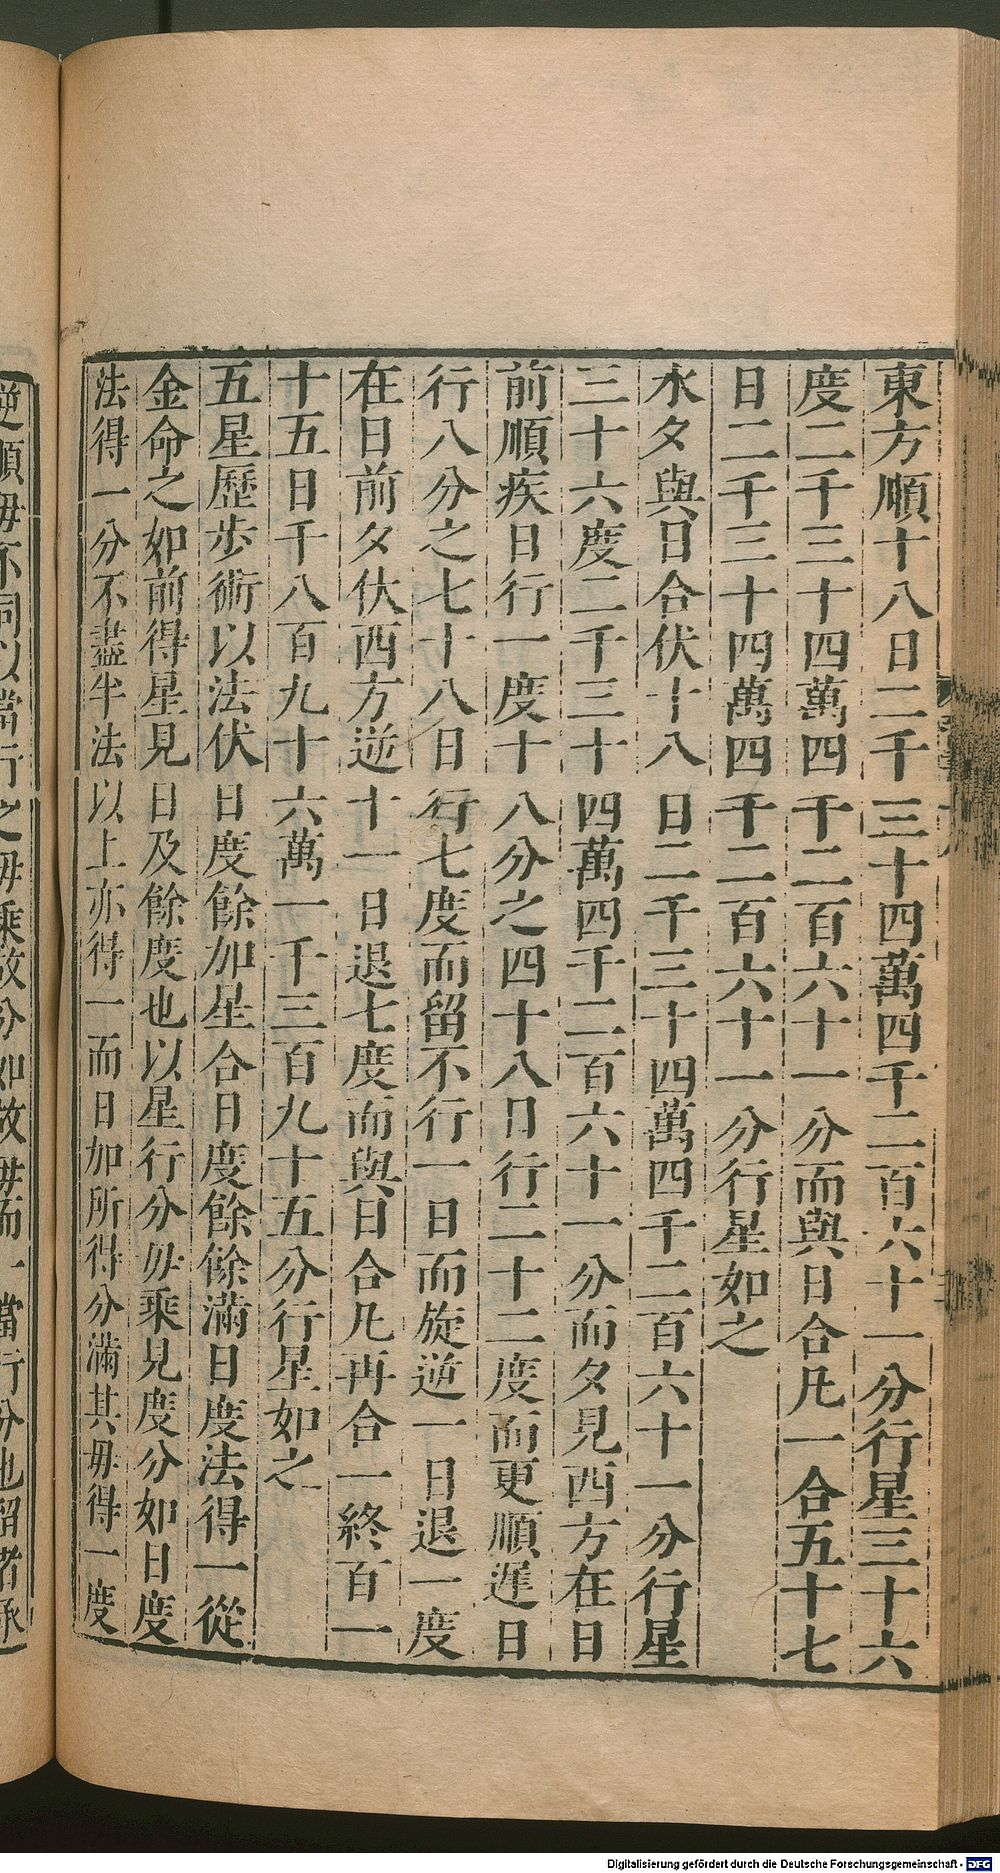 東方順十八日二千三十四萬四千二百六十一分行星三十六
度二千三十四萬四千二百六十一分而與日合凡一合五十七
日二千三十四萬四千二百六十一分行星如之
水夕與日合伏十八日二千三十四萬四千二百六十一分行星
三十六度二千三十四萬四千二百六十一分而夕見西方在日
前順疾日行一度十八分之四十八日行二十二度而更順遲日
行八分之七十八日行七度而留不行一日而旋逆一日退一度
在日前夕伏西方逆十一日退七度而與日合凡再合一終百一
十五日千八百九十六萬一千三百九十五分行星如之
五星歷步術以法伏日度餘加星合日度餘餘滿日度法得一從
金命之如前得星見日及餘度也以星行分毋乘見度分如日度
法得一分不盡半法以上亦得一而日加所得分滿其毋得一度
逆順毋不同以當行之毋乘故分如故毋而一當行分也留者承
Digitalisierung gefördert durch die Deutsche Forschungsgemeinschaft - DFG